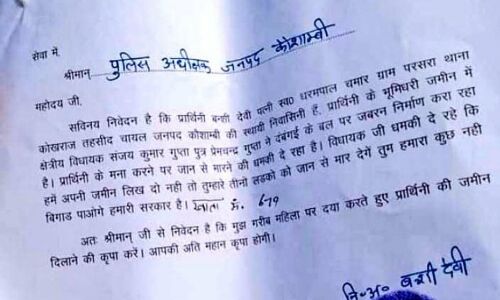 सेवा में,
श्रीमान् पुलिस अधीक्षक जनपद कौशाम्बी
महोदय जी,
सविनय निवेदन है कि प्रार्थिनी बन्शी देवी पत्नी स्व0 धरमपाल चमार ग्राम परसरा थाना
कोखराज तहसीद चायल जनपद कौशाम्बी की स्थायी निवासिनी हैं, प्रार्थिनी के भूमिधरी जमीन में
क्षेत्रीय विधायक संजय कुमार गुप्ता पुत्र प्रेमचन्द्र गुप्ता ने दबंगई के बल पर जबरन निर्माण करा रहा
है। प्रार्थिनी के मना करने पर जान से मारने की धमकी दे रहा है। विधायक जी धमकी दे रहे कि
हमें अपनी जमीन लिख दो नही तो तुम्हारे तीनो लडको को जान से मार देगें तुम हमारा कुछ नही
बिगाड पाओगे हमारी सरकार है। खाता सं. 679
अतः श्रीमान् जी से निवेदन है कि मुझ गरीब महिला पर दया करते हुए प्रार्थिनी की जमीन
दिलाने की कृपा करें। आपकी अति महान कृपा होगी।
नि०अ० बन्शी देवी